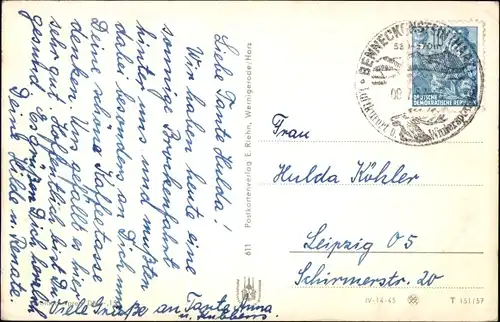 Liebe Tante Hulda!
Wir haben heute eine
sonnige Brockenfahrt
hinter uns und mußten
dabei besonders an Dich und
Deine schöne Kaffeetasse
denken. Uns gefällt es hier
sehr gut. Hoffentlich bist Du
gesund. Es grüßen Dich herzlich
Deine Hilde u. Renate.
Viele Grüße an Tante Anna
u.
611 Postkartenverlag E. Riehn, Wernigerode/Harz
BENNECKENSTEIN (HARZ)
DEUTSCHE
DEMOKRATISCHE REPUBLIK
Luftkurort u. Wintersport
Frau
Hulda Köhler
Leipzig O5
Schirmerstr. 20
IV-14-45
T 151/57